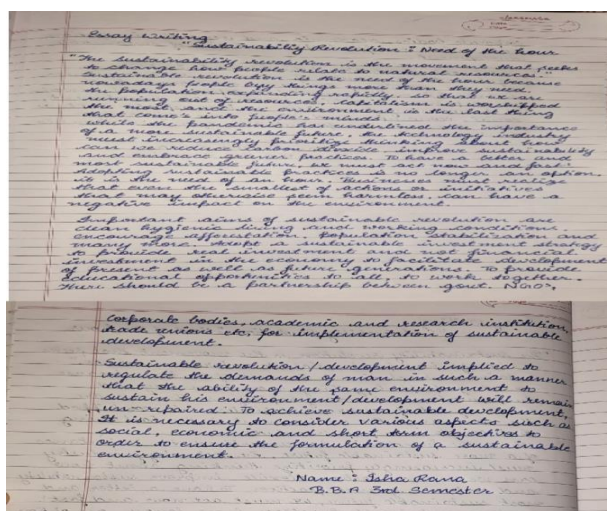 Essay Writing
"Sustainability Revolution : Need of the hour
"The sustainability revolution is the movement that seeks
to change how people relate to natural resources."
Sustainable revolution is the need of the hour because
nowadays people buy things more than they need,
the population expanding rapidly, so that we are
running out of resources, Capitalism is worshipped
the most and the environment is the last thing
that come's into people's minds.
while the pandemic has underlined the importance
of a more sustainable future the technology industry
must increasingly prioritize thinking about how
can we reduce carbon dioxide, improve sustainability
and embrace greener practices. To have a better and
most sustainable future, we must act now and fast.
Adopting sustainable practices is no longer an option,
it is the need of an hour. Businesses must realize
that even the smallest of actions or initiatives
that may otherwise seem harmless can have a
negative impact on the environment.
Important aims of sustainable revolution are
clean hygienic living and working conditions,
encourage afforestation, Population Stabilisation and
many more. Adopt a sustainable investment strategy
to provide real investment and not financial
investment in the economy to facilitate development
of present as well as future generations. To provide
educational opportunities to all to work together.
There should be a partnership between govt. NGO's,
Corporate bodies, academic and research institution,
trade unions etc, for implementation of sustainable
development.
Sustainable revolution / development implied to
regulate the demands of man in such a manner
that the ability of the same environment to
sustain his environment / development will remain
un-repaired. To achieve sustainable development,
It is necessary to consider various aspects such as
social, economic and short term objectives to
order to ensure the formulation of a sustainable
environment.
Name : Isha Rana
B.B.A 3rd Semester